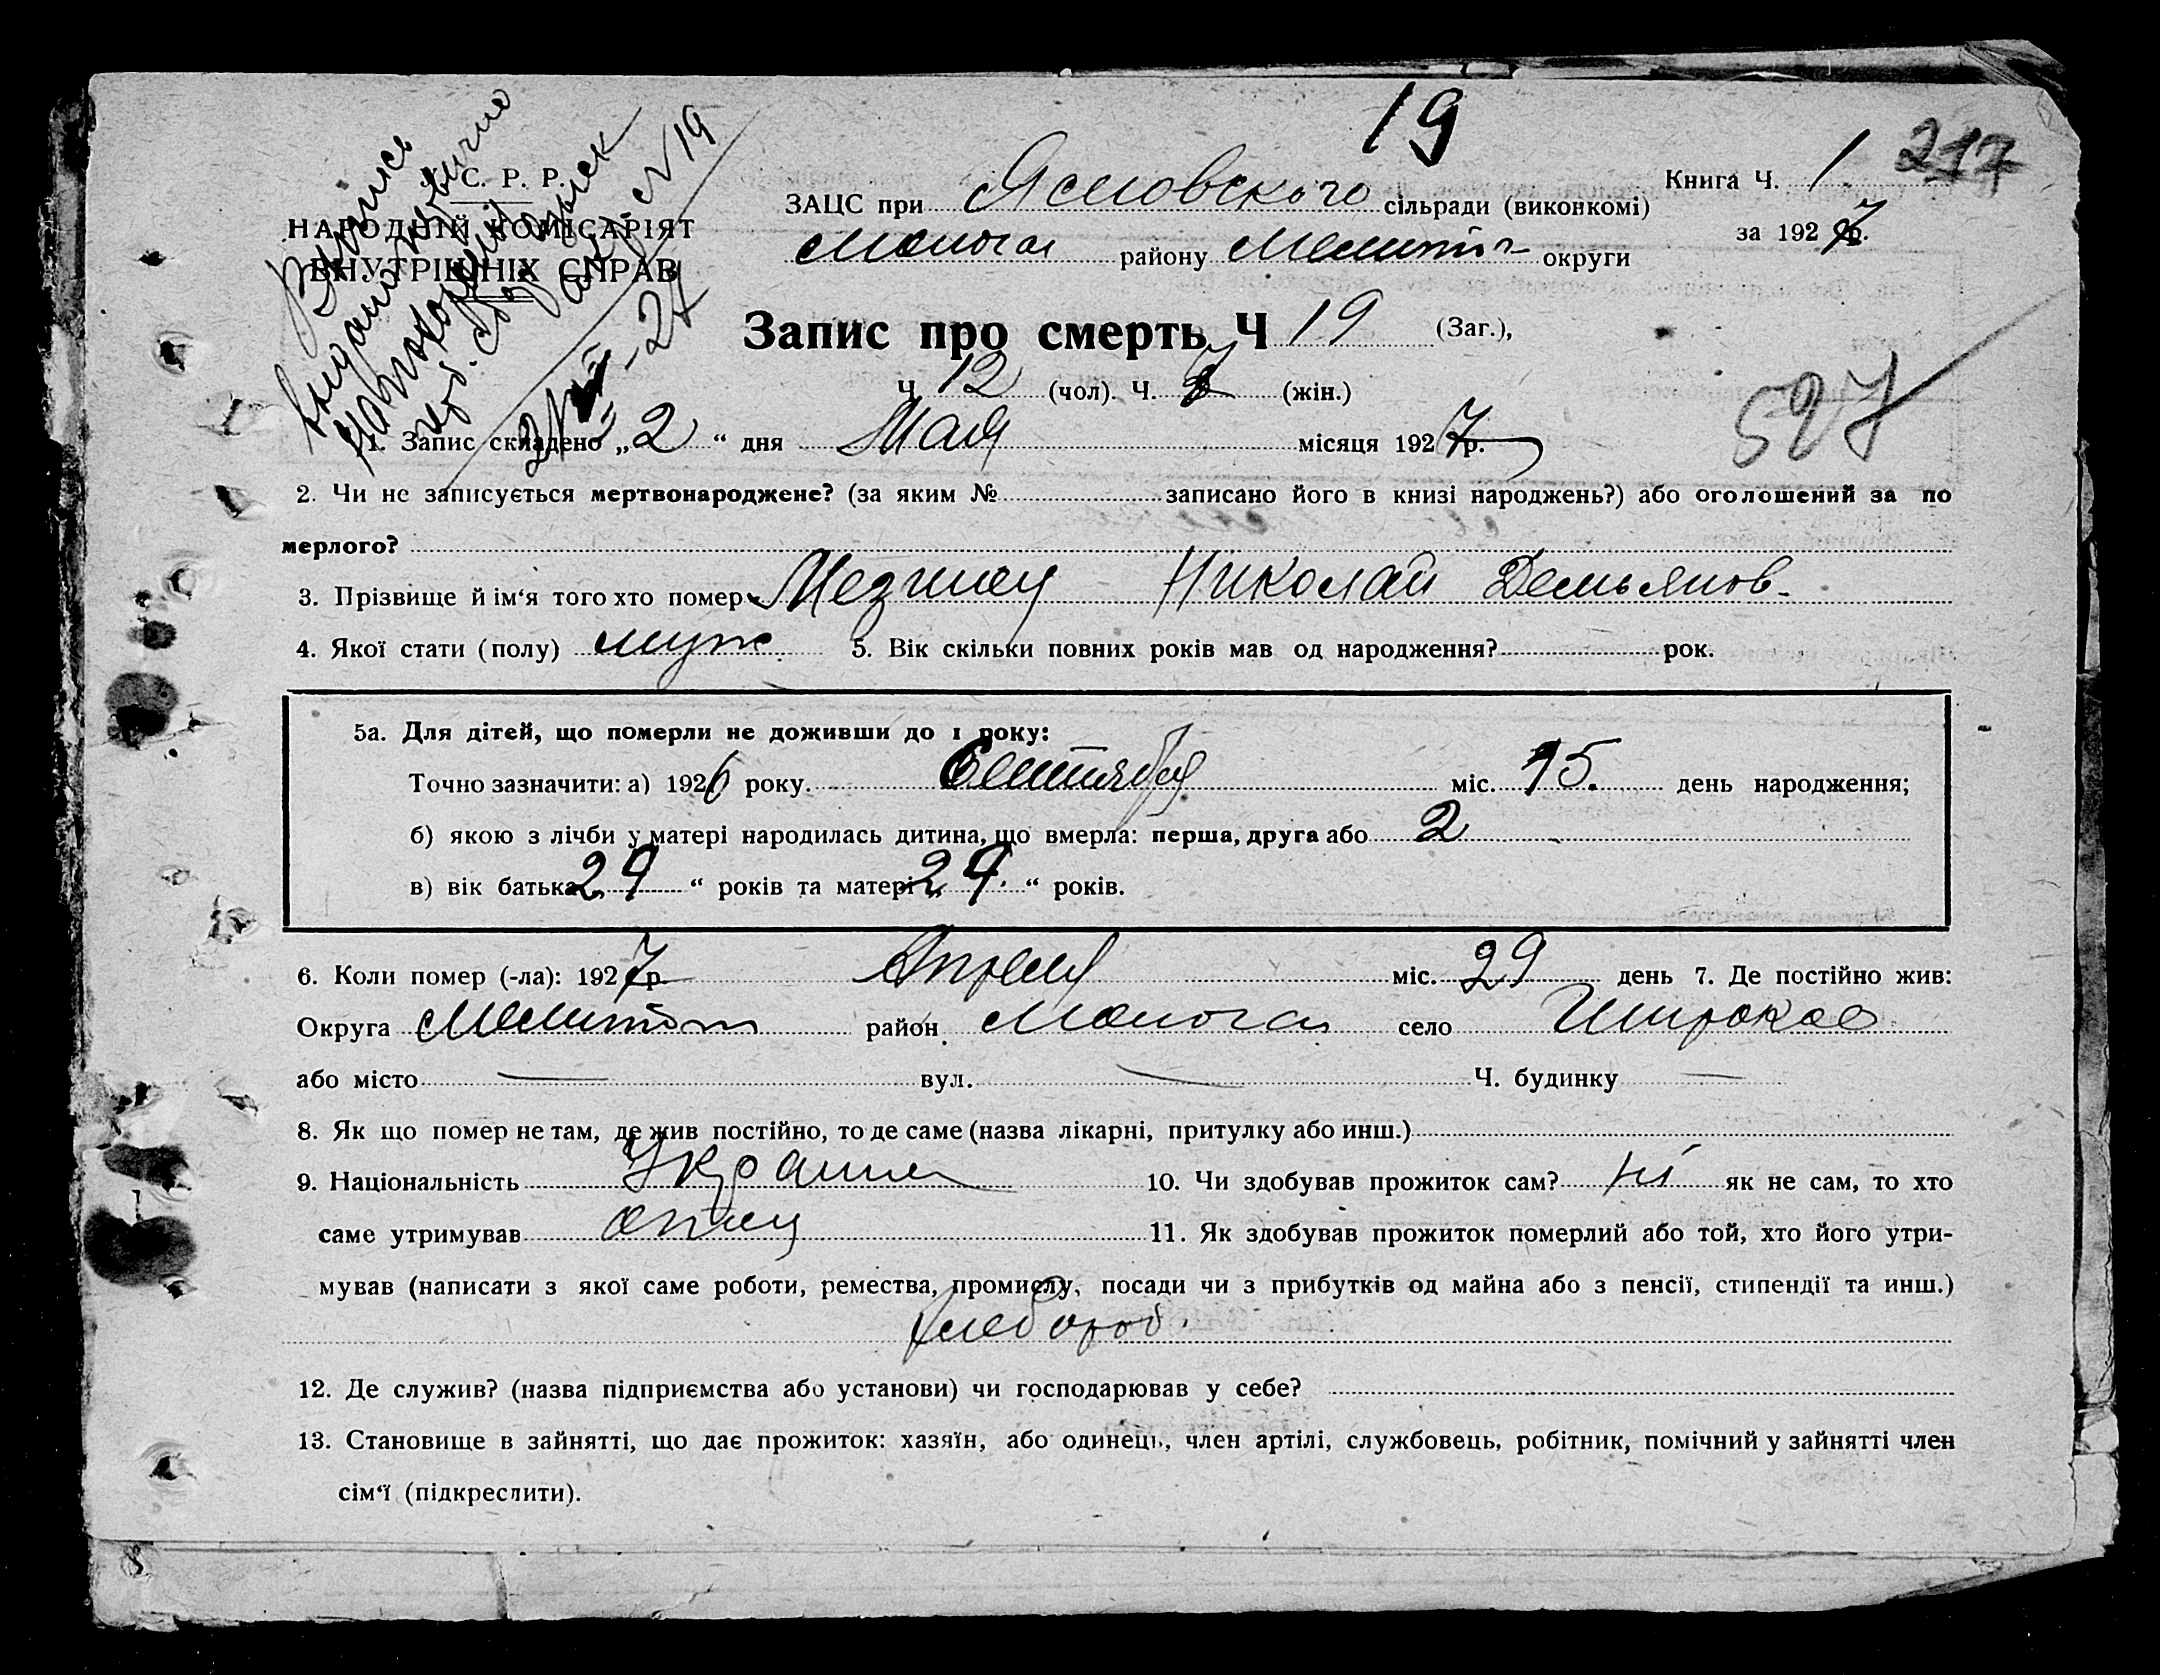 19
Книга Ч. 1 217
С. Р. Р.
НАРОДНІЙ КОМІСАРІЯТ
ВНУТРІШНІХ СПРАВ
ЗАЦС при сільради (виконкомі)
за 1927 р.
району Мелитоп округи
Запис про смерть Ч 19 (Заг.),
Ч. 12 (чол). Ч. 7 (жін.)
527
1. Запис складено „2“ дня Мая місяця 1927 р.
2. Чи не записується мертвонароджене? (за яким № записано його в книзі народжень?) або оголошений за по
мерлого?
3. Прізвище й ім‘я того хто помер Николай Демьянов.
4. Якої стати (полу) муж. 5. Вік скільки повних років мав од народження? рок.
5а. Для дітей, що померли не доживши до 1 року:
Точно зазначити: а) 1926 року. Сентября міс. 15. день народження;
б) якою з лічби у матері народилась дитина, що вмерла: перша, друга або 2
в) вік батька 24 “ років та матері 24. “ років.
6. Коли помер (-ла): 1927 р. Апреля міс. 29 день 7. Де постійно жив:
Округа Мелитоп район село Широкое
або місто — вул. — Ч. будинку —
8. Як що помер не там, де жив постійно, то де саме (назва лікарні, притулку або инш.)
9. Національність Украин 10. Чи здобував прожиток сам? ні як не сам, то хто
саме утримував отец 11. Як здобував прожиток померлий або той, хто його утри-
мував (написати з якої саме роботи, ремества, промислу, посади чи з прибутків од майна або з пенсії, стипендії та инш.)
хлебороб.
12. Де служив? (назва підприємства або установи) чи господарював у себе?
13. Становище в зайнятті, що дає прожиток: хазяїн, або одинець, член артілі, службовець, робітник, помічний у зайнятті член
сім‘ї (підкреслити).